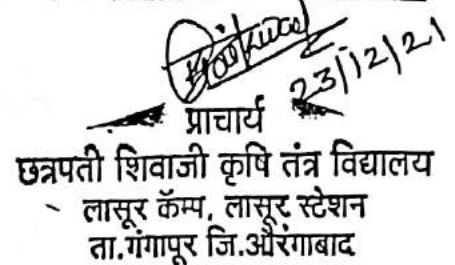 23/12/21
प्राचार्य
छत्रपती शिवाजी कृषि तंत्र विद्यालय
लासूर कॅम्प, लासूर स्टेशन
ता.गंगापूर जि.औरंगाबाद